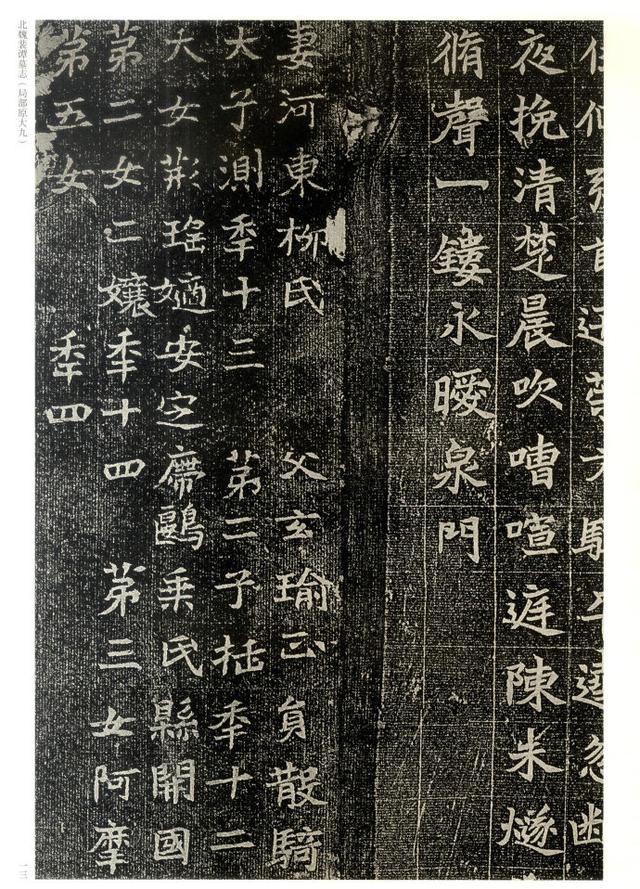 夜挽清楚晨吹嘈喧遅陳朱燧
脩聲一鏤永曖泉門
妻河東柳氏 父玄瑜正員散騎
大子測秊十三 第二子𢪛秊十二
大女㓝瑤嫡安定席鷗乘氏縣開國
第二女二孃秊十四 第三女阿摩
第五女 秊四
北魏裴譚墓志（局部原大九）
一三